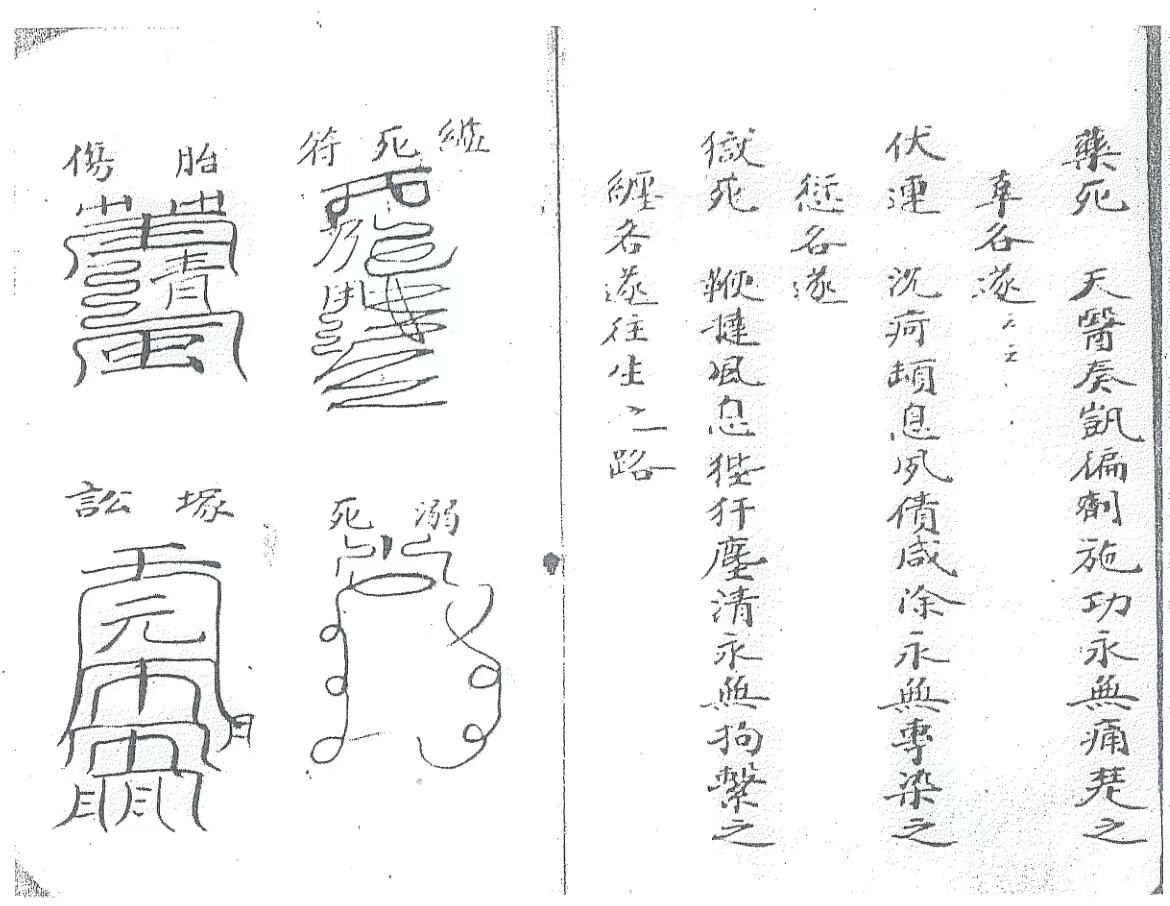 藥死　天醫奏凱偏劑施功永無痛楚之
車各遂云云
伏連　沉疴頓息夙債咸除永無專染之
愆各遂
獄死　鞭撻風息狴犴塵清永無拘繫之
纏各遂往生之路
死符
溺死
胎傷
塚訟